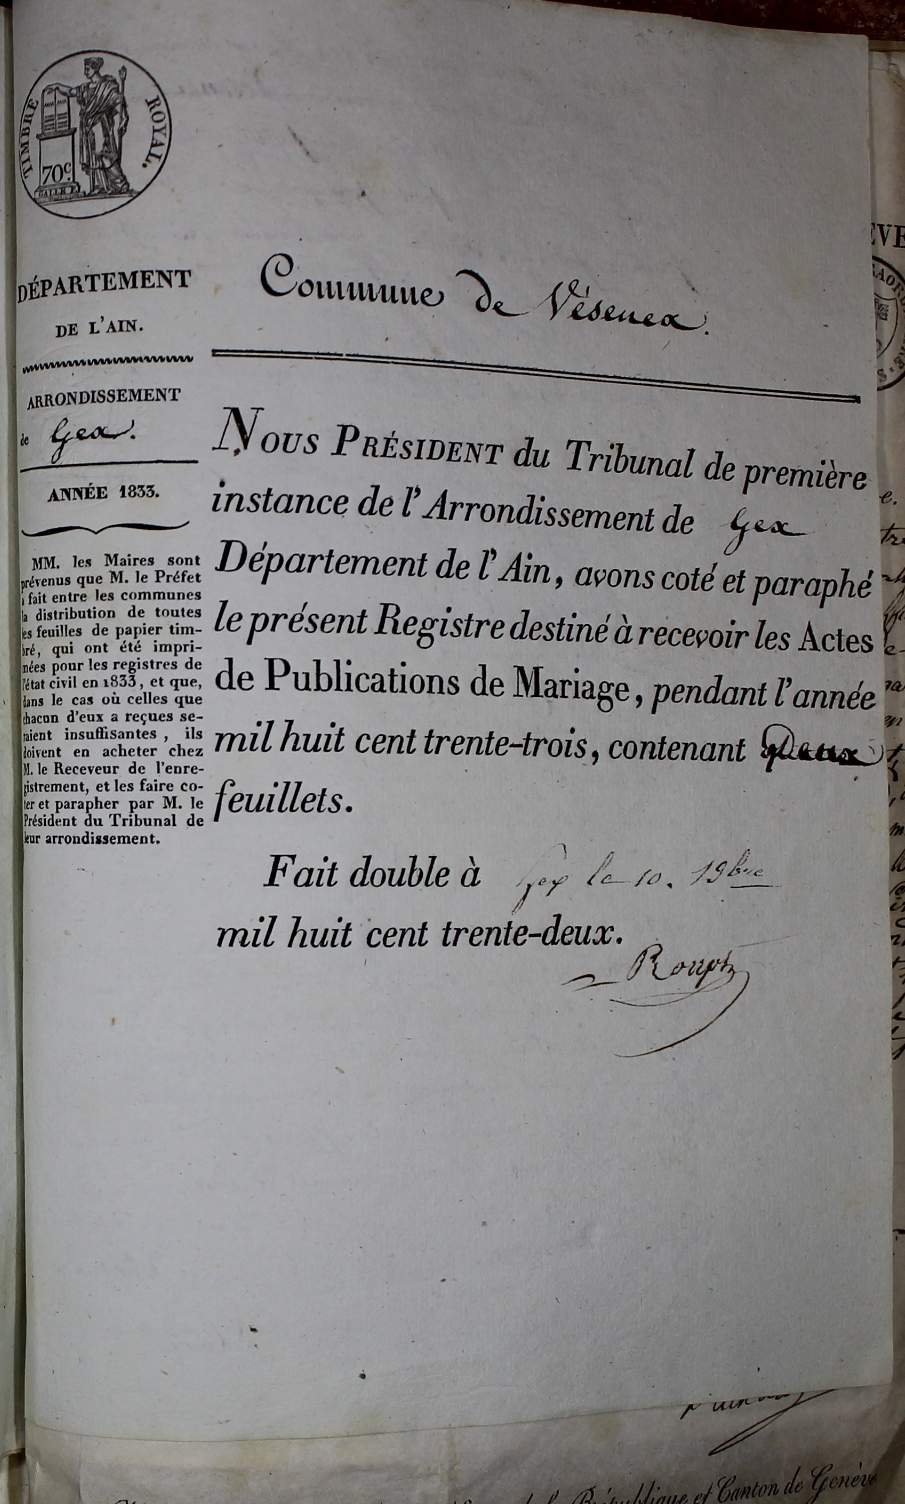 TIMBRE ROYAL.
70c.
DÉPARTEMENT
DE L'AIN.
ARRONDISSEMENT
de Gex.
ANNÉE 1833.
MM. les Maires sont
prévenus que M. le Préfet
a fait entre les communes
la distribution de toutes
les feuilles de papier tim-
bré, qui ont été impri-
mées pour les registres de
l'état civil en 1833, et que,
dans le cas où celles que
chacun d'eux a reçues se-
raient insuffisantes, ils
doivent en acheter chez
M. le Receveur de l'enre-
gistrement, et les faire co-
ter et parapher par M. le
Président du Tribunal de
leur arrondissement.
Commune de Vésenex.
NOUS PRÉSIDENT du Tribunal de première
instance de l'Arrondissement de Gex
Département de l'Ain, avons coté et paraphé
le présent Registre destiné à recevoir les Actes
de Publications de Mariage, pendant l'année
mil huit cent trente-trois, contenant Deux
feuillets.
Fait double à Gex le 10.
mil huit cent trente-deux.
République et Canton de Genève